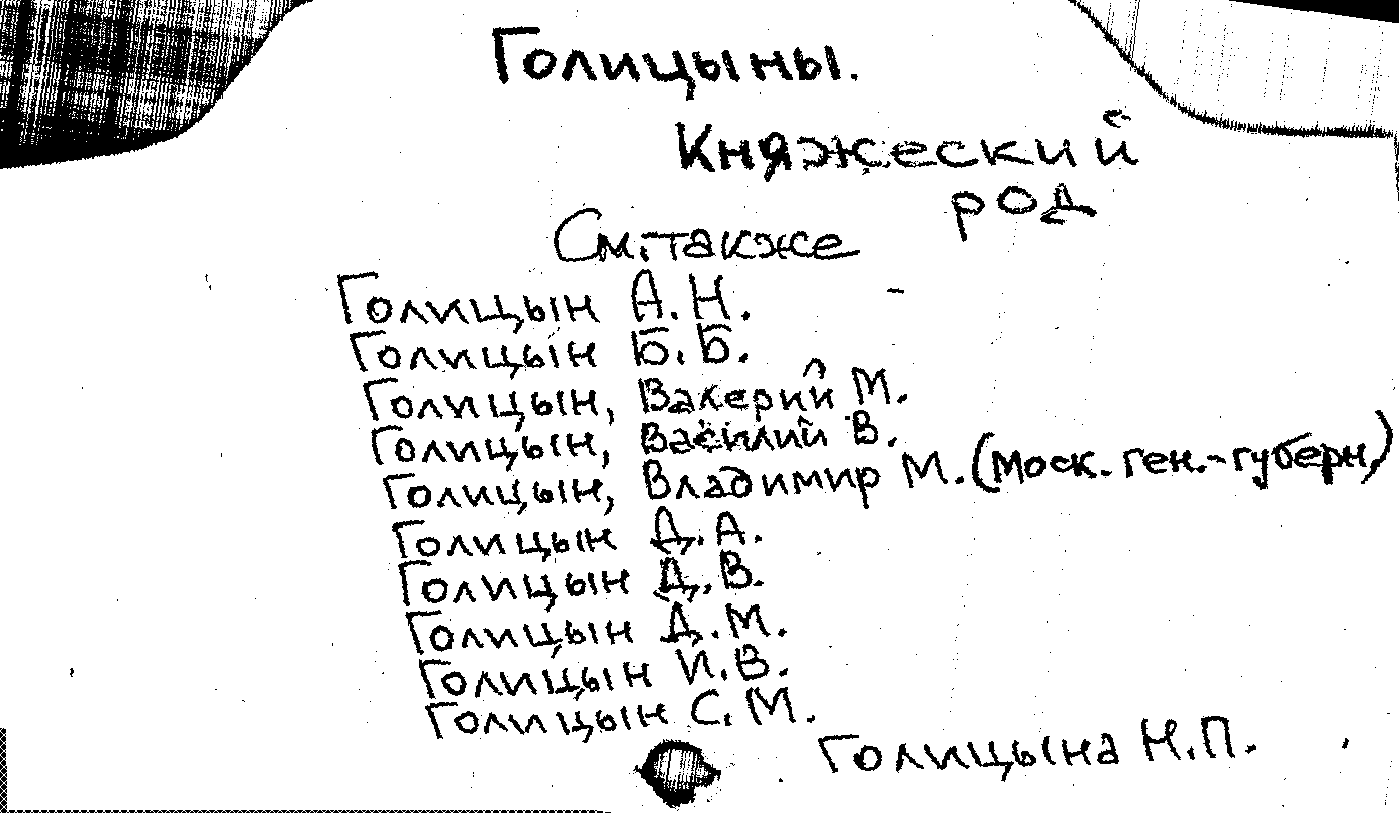 Голицыны.
Княжеский
род
См. также
Голицын А.Н.
Голицын Б.Б.
Голицын, Валерий М.
Голицын, Василий В.
Голицын, Владимир М. (Моск. ген.-губерн.)
Голицын Д.А.
Голицын Д.В.
Голицын Д.М.
Голицын И.В.
Голицын С.М.
Голицына Н.П.